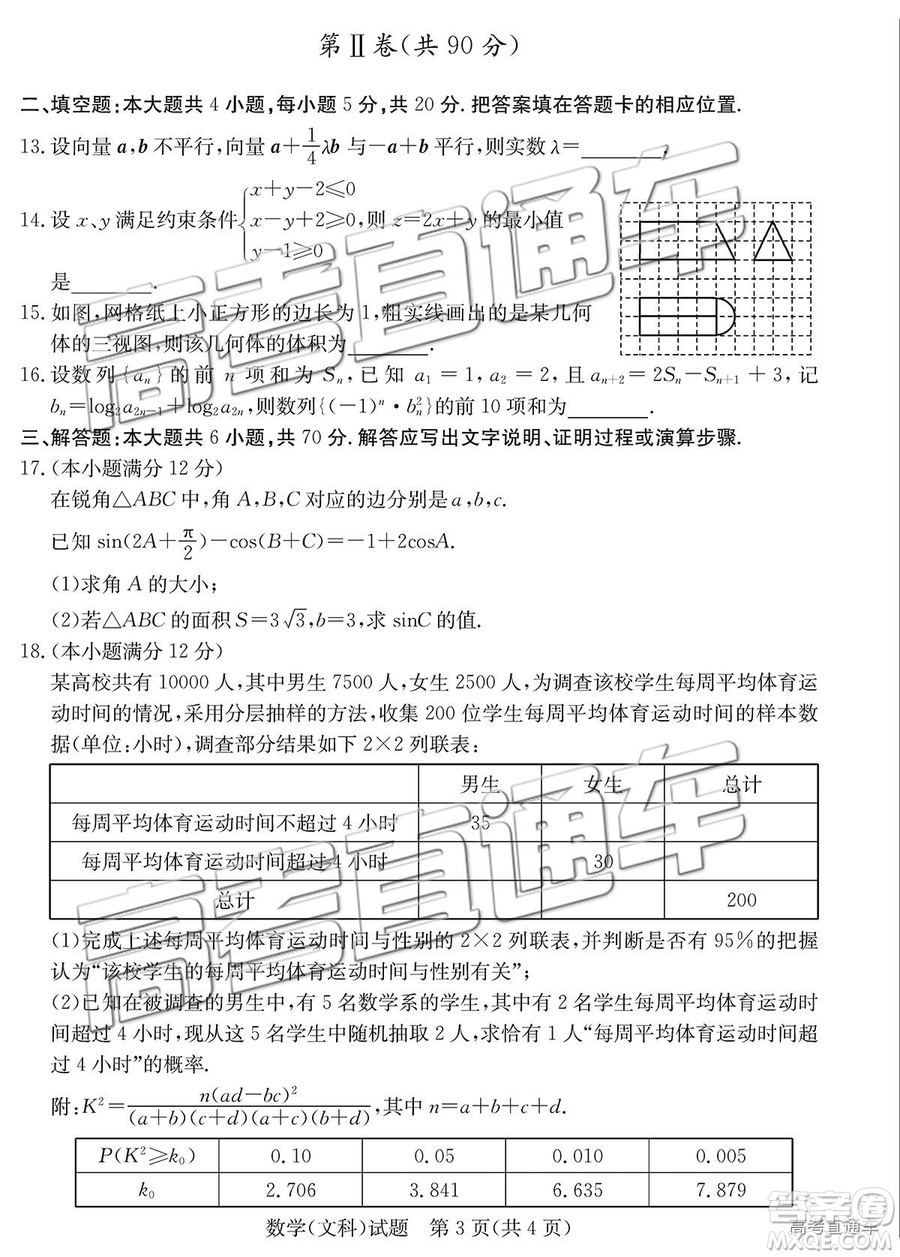 第Ⅱ卷(共 90 分)
二、填空题:本大题共 4 小题,每小题 5 分,共 20 分. 把答案填在答题卡的相应位置.
13. 设向量 a,b 不平行,向量 a+1/4λb 与-a+b 平行,则实数 λ=________.
14. 设 x、y 满足约束条件{x+y-2≤0
x-y+2≥0,则 z=2x+y 的最小值
y-1≥0
是________.
15. 如图,网格纸上小正方形的边长为 1,粗实线画出的是某几何
体的三视图,则该几何体的体积为________.
16. 设数列{aₙ}的前 n 项和为 Sₙ,已知 a₁=1,a₂=2,且aₙ₊₂=2Sₙ-Sₙ₊₁+3,记
bₙ=log₂a₂ₙ₋₁+log₂a₂ₙ,则数列{(-1)ⁿ·bₙ²}的前 10 项和为________.
三、解答题:本大题共 6 小题,共 70 分. 解答应写出文字说明、证明过程或演算步骤.
17. (本小题满分 12 分)
在锐角△ABC 中,角 A,B,C 对应的边分别是 a,b,c.
已知 sin(2A+π/2)-cos(B+C)=-1+2cosA.
(1)求角 A 的大小;
(2)若△ABC 的面积 S=3√3,b=3,求 sinC 的值.
18. (本小题满分 12 分)
某高校共有 10000 人,其中男生 7500 人,女生 2500 人,为调查该校学生每周平均体育运
动时间的情况,采用分层抽样的方法,收集 200 位学生每周平均体育运动时间的样本数
据(单位:小时),调查部分结果如下 2×2 列联表:
男生 女生 总计
每周平均体育运动时间不超过 4 小时 35
每周平均体育运动时间超过 4 小时 30
总计 200
(1)完成上述每周平均体育运动时间与性别的 2×2 列联表,并判断是否有 95%的把握
认为“该校学生的每周平均体育运动时间与性别有关”;
(2)已知在被调查的男生中,有 5 名数学系的学生,其中有 2 名学生每周平均体育运动时
间超过 4 小时,现从这 5 名学生中随机抽取 2 人,求恰有 1 人“每周平均体育运动时间超
过 4 小时”的概率.
附:K²=n(ad-bc)²/(a+b)(c+d)(a+c)(b+d),其中 n=a+b+c+d.
P(K²≥k₀) 0.10 0.05 0.010 0.005
k₀ 2.706 3.841 6.635 7.879
数学(文科)试题 第 3 页(共 4 页)
高考直通车
高考直通车
答案圈
高考直通车
MXQE.COM